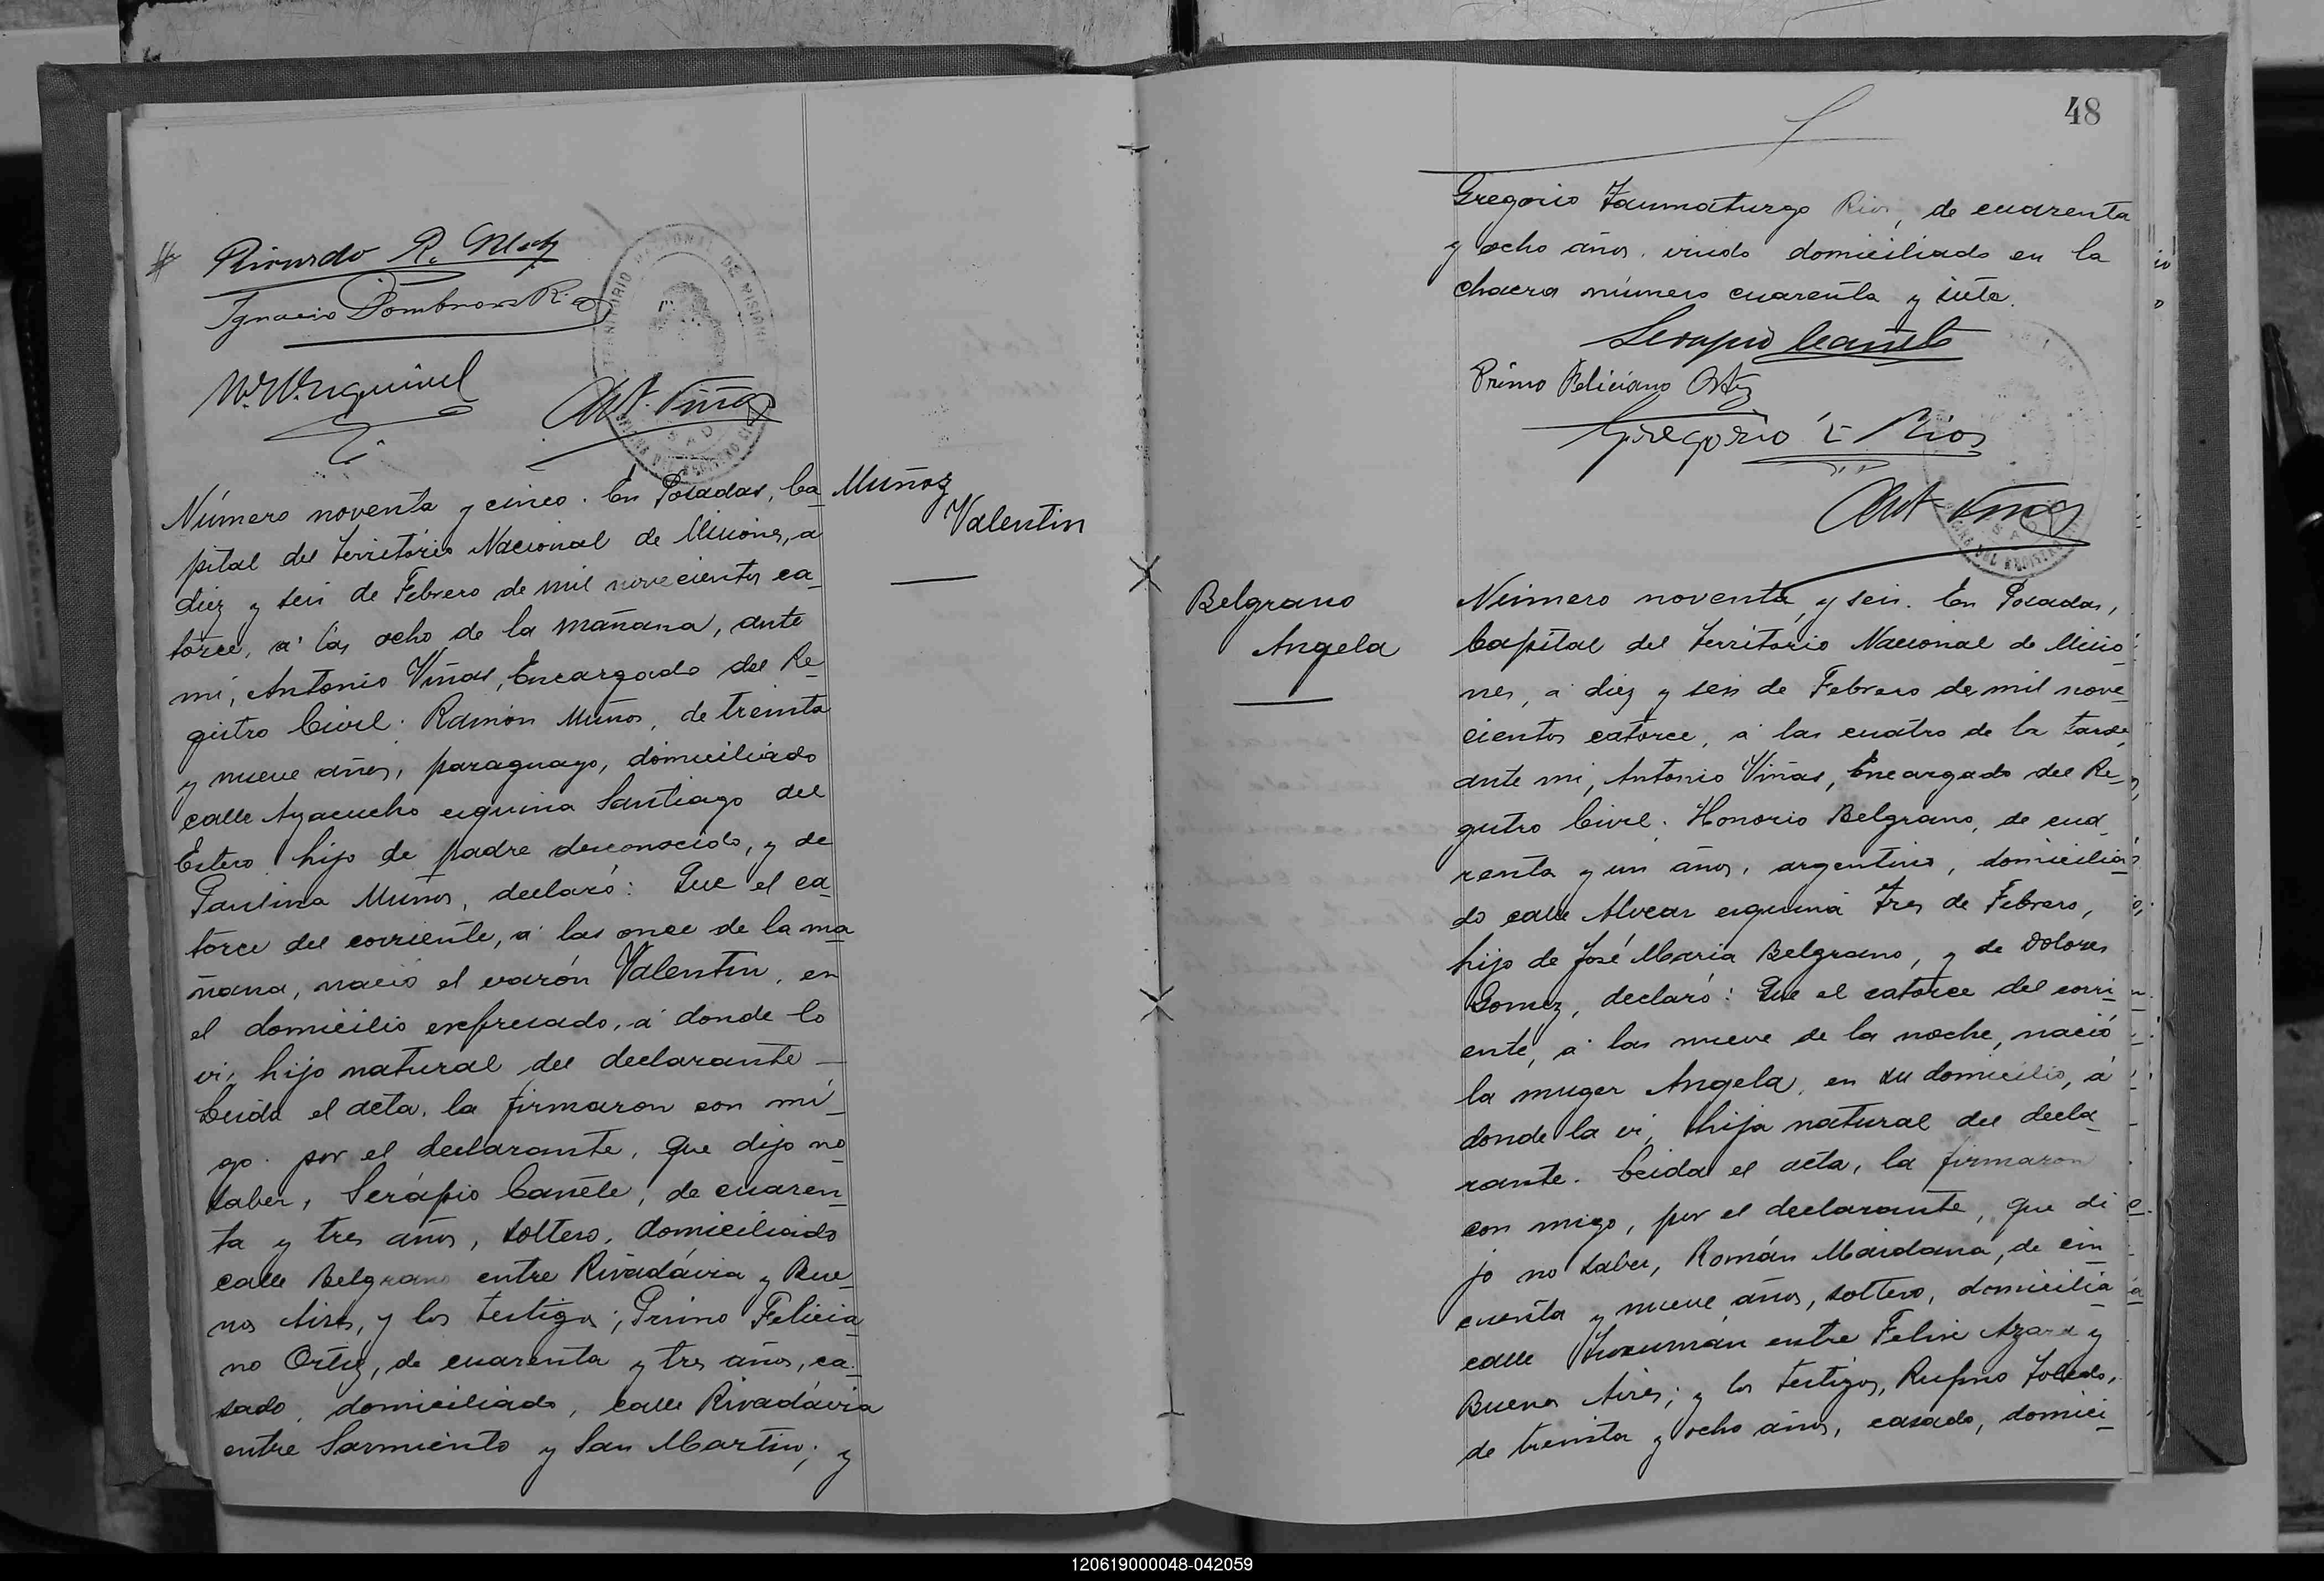 Ricardo R.
Ignacio Dombrowski
Ant. Viñas
Número noventa y cinco. En Posadas, Ca
pital del territorio Nacional de Misiones, a
diez y seis de Febrero de mil novecientos ca
torce, á las ocho de la mañana, ante
mi, Antonio Viñas, Encargado del Re
gistro Civil: Ramón Muños, de treinta
y nueve años, paraguayo, domiciliado
calle Ayacucho esquina Santiago del
Estero hijo de padre desconocido, y de
Paulina Muños, declaró: Que el ca
torce del corriente, á las once de la ma
ñana, nació el varón Valentin, en
el domicilio expresado, á donde lo
vi, hijo natural del declarante —
Leida el acta, la firmaron con mi
go por el declarante, que dijo no
saber, Serápio Cañete, de cuaren
ta y tres años, soltero, domiciliado
calle Belgrano entre Rivadávia y Bue
nos Aires, y los testigos; Primo Felicia
no Ortiz, de cuarenta y tres años, ca
sado, domiciliado, calle Rivadávia
entre Sarmiento y San Martin; y
Muñoz
Valentin
48
Gregorio Taumaturgo Rios, de cuarenta
y ocho años, viudo domiciliado en la
chacra número cuarenta y siete.
Serapio Cañete
Primo Feliciano Ortiz
Gregorio T Rios
Ant Viñas
Belgrano
Angela
Número noventa y seis. En Posadas,
Capital del territorio Nacional de Misio
nes, á diez y seis de Febrero de mil nove
cientos catorce, á las cuatro de la tarde,
ante mi, Antonio Viñas, Encargado del Re
gistro Civil: Honorio Belgrano, de cua
renta y un años, argentino, domicilia
do calle Alvear esquina tres de Febrero,
hijo de José Maria Belgrano, y de Dolores
Gomez, declaró: Que el catorce del corri
ente, á las nueve de la noche, nació
la muger Angela, en su domicilio, á
donde la vi, hija natural del decla
rante. Leida el acta, la firmaron
con migo, por el declarante, que di
jo no saber, Román Maidana, de cin
cuenta y nueve años, soltero, domicilia
calle Tucumán entre Felix Azara y
Buenos Aires; y los testigos, Rufino Toledo,
de treinta y ocho años, casado, domici
120619000048-042059